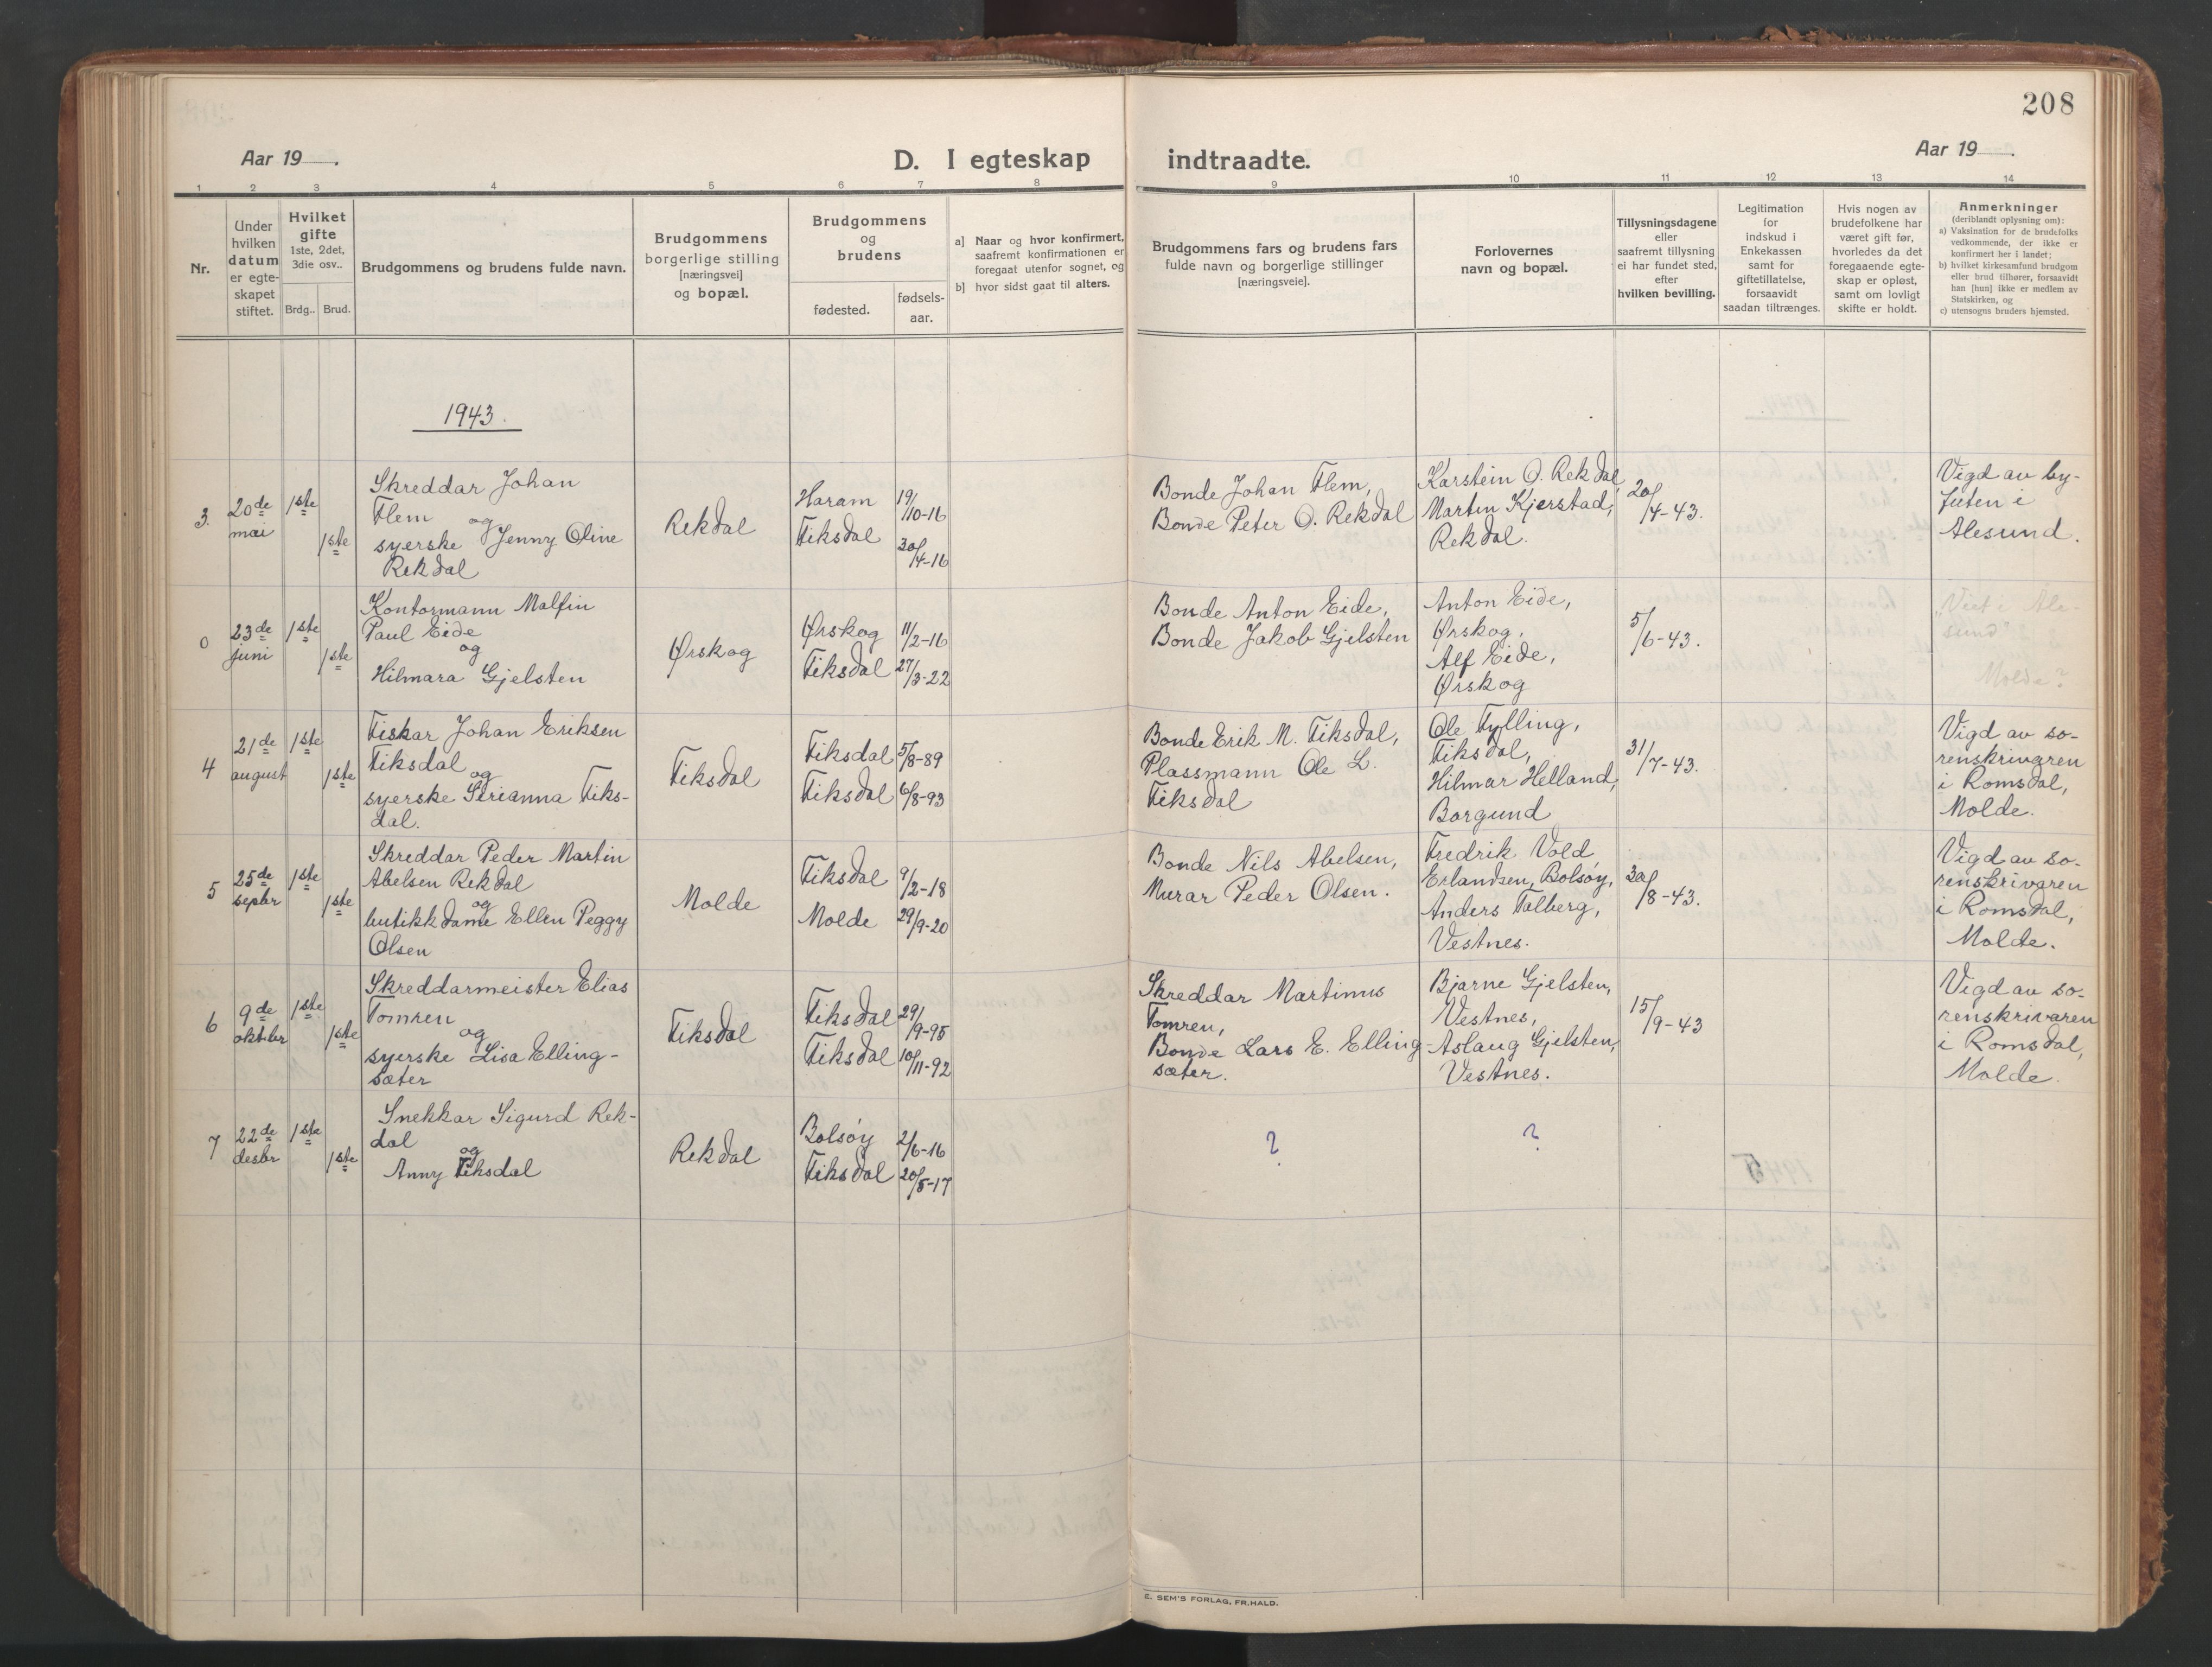 208
Aar 19 .
D. I egteskap indtraadte.
Aar 19 .
1 2 3 4 5 6 7 8 9 10 11 12 13 14
Nr.
Under
hvilken
datum
er egte-
skapet
stiftet.
Hvilket
gifte
1ste, 2det,
3die osv..
Brdg.. Brud.
Brudgommens og brudens fulde navn.
Brudgommens
borgerlige stilling
[næringsvei]
og bopæl.
Brudgommens
og
brudens
fødested.
fødsels-
aar.
a] Naar og hvor konfirmert,
saafremt konfirmationen er
foregaat utenfor sognet, og
b] hvor sidst gaat til alters.
Brudgommens fars og brudens fars
fulde navn og borgerlige stillinger
[næringsveie].
Forlovernes
navn og bopæl.
Tillysningsdagene
eller
saafremt tillysning
ei har fundet sted,
efter
hvilken bevilling.
Legitimation
for
indskud i
Enkekassen
samt for
giftetillatelse,
forsaavidt
saadan tiltrænges.
Hvis nogen av
brudefolkene har
været gift før,
hvorledes da det
foregaaende egte-
skap er opløst,
samt om lovligt
skifte er holdt.
Anmerkninger
(deriblandt oplysning om):
a) Vaksination for de brudefolks
vedkommende, der ikke er
konfirmert her i landet;
b) hvilket kirkesamfund brudgom
eller brud tilhører, forsaavidt
han [hun] ikke er medlem av
Statskirken, og
c) utensogns bruders hjemsted.
1943.
3.
20de
mai
1ste
1ste
Skreddar Johan
Flem
og
syerske Jenny Oline
Rekdal
Rekdal
Haram 19/10-16
Fiksdal 30/4-16
Bonde Johan Flem,
Bonde Peter O. Rekdal
Karstein O. Rekdal,
Martin Kjerstad,
Rekdal.
20/4-43.
Vigd av by-
futen i
Ålesund.
0
23de
juni
1ste
1ste
Kontormann Malfin
Paul Eide
og
Hilmara Gjelsten
Ørskog
Ørskog 11/2-16
Fiksdal 27/3-22
Bonde Anton Eide,
Bonde Jakob Gjelsten
Anton Eide,
Ørskog,
Alf Eide,
Ørskog
5/6-43.
Viet i Ale-
sund?
Molde?
4
21de
august
1ste
1ste
Fiskar Johan Eriksen
Fiksdal
og
syerske Serianna Fiks-
dal.
Fiksdal
Fiksdal 5/8-89
Fiksdal 6/8-93
Bonde Erik M. Fiksdal,
Plassmann Ole L.
Fiksdal
Ole Fylling,
Fiksdal,
Hilmar Helland,
Borgund
31/7-43.
Vigd av so-
renskrivaren
i Romsdal,
Molde.
5
25de
septbr
1ste
1ste
Skreddar Peder Martin
Abelsen Rekdal
og
butikkdame Ellen Peggy
Olsen
Molde
Fiksdal 9/2-18
Molde 29/9-20
Bonde Nils Abelsen,
Murar Peder Olsen.
Fredrik Vold
Erlandsen, Bolsøy,
Anders Talberg,
Vestnes.
30/8-43.
Vigd av so-
renskrivaren
i Romsdal,
Molde.
6
9de
oktbr
1ste
1ste
Skreddarmeister Elias
Tomren
og
syerske Lisa Elling-
sæter
Fiksdal
Fiksdal 29/9-95
Fiksdal 10/11-92
Skreddar Martinus
Tomren,
Bonde Lars E. Elling-
sæter.
Bjarne Gjelsten,
Vestnes,
Aslaug Gjelsten,
Vestnes.
15/9-43
Vigd av so-
renskrivaren
i Romsdal,
Molde.
7
22de
desbr
1ste
1ste
Snekkar Sigurd Rek-
dal
og
Anny Fiksdal
Rekdal
Bolsøy 2/6-16
Fiksdal 20/5-17
?
?
E. SEM'S FORLAG, FR.HALD.